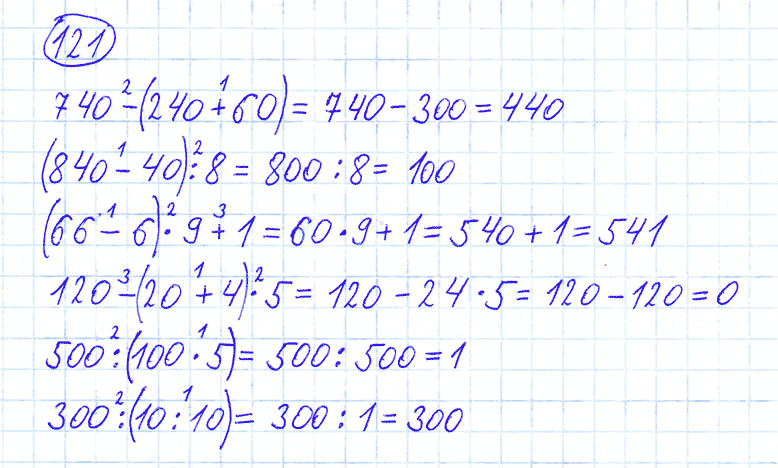 121
740 ²− (240 ¹+ 60) = 740 − 300 = 440
(840 ¹− 40) ²: 8 = 800 : 8 = 100
(66 ¹− 6) ²· 9 ³+ 1 = 60 · 9 + 1 = 540 + 1 = 541
120 ³− (20 ¹+ 4) ²· 5 = 120 − 24 · 5 = 120 − 120 = 0
500 ²: (100 ¹· 5) = 500 : 500 = 1
300 ²: (10 ¹: 10) = 300 : 1 = 300